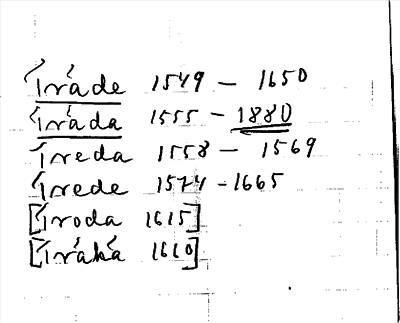 Íráde 1549 – 1650
Íráda 1555 – 1880
Íreda 1558 – 1569
Írede 1574 – 1665
[Íroda 1615]
[Íráká 1610]